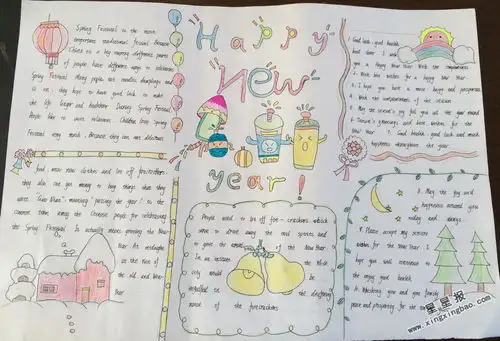 Spring Festival is the most
important traditional festival Because
China is a big country different parts
of people have different ways to celebrate
Spring Festival Many people eat noodles dumplings and
so on, they hope to have good luck to make
the life longer and healthier During Spring Festival
People like to wear Children Enjoy Spring
Festival very much, Because they can eat delicious
food wear new clothes and let off firecrackers
they also can get money to buy things what they
were "Guo Nian" meaning "passing the year" is the
common term among the Chinese people for celebrating
the Spring Festival It actually means greeting the New
Year At midnight
at the turn of
the old and New
Year
HAPPY
New
year!
People used to let off fire-crackers which
was to drive away the evil spirits and
to greet the of the New Year
In an instant the whole
city would be
in the deafening
noise of the firecrackers
1. Good luck, good health
you a Happy New Year With the compliments
2. With best wishes for a happy New Year
3. I hope you have a most happy and prosperous
4. With the compliments of the season
5. May the season's joy fill you all the year round
6. Season's greetings and best wishes for the
New Year 7. Good health good luck and much
happiness throughout the year
8. May the joy and
happiness around you
today and always
9. Please accept my season
wishes for the New Year I
hope you will continue to
the enjoy good health
10. Wishing you and you family
peace and prosperity for the
星星报
www.xingxingbao.com